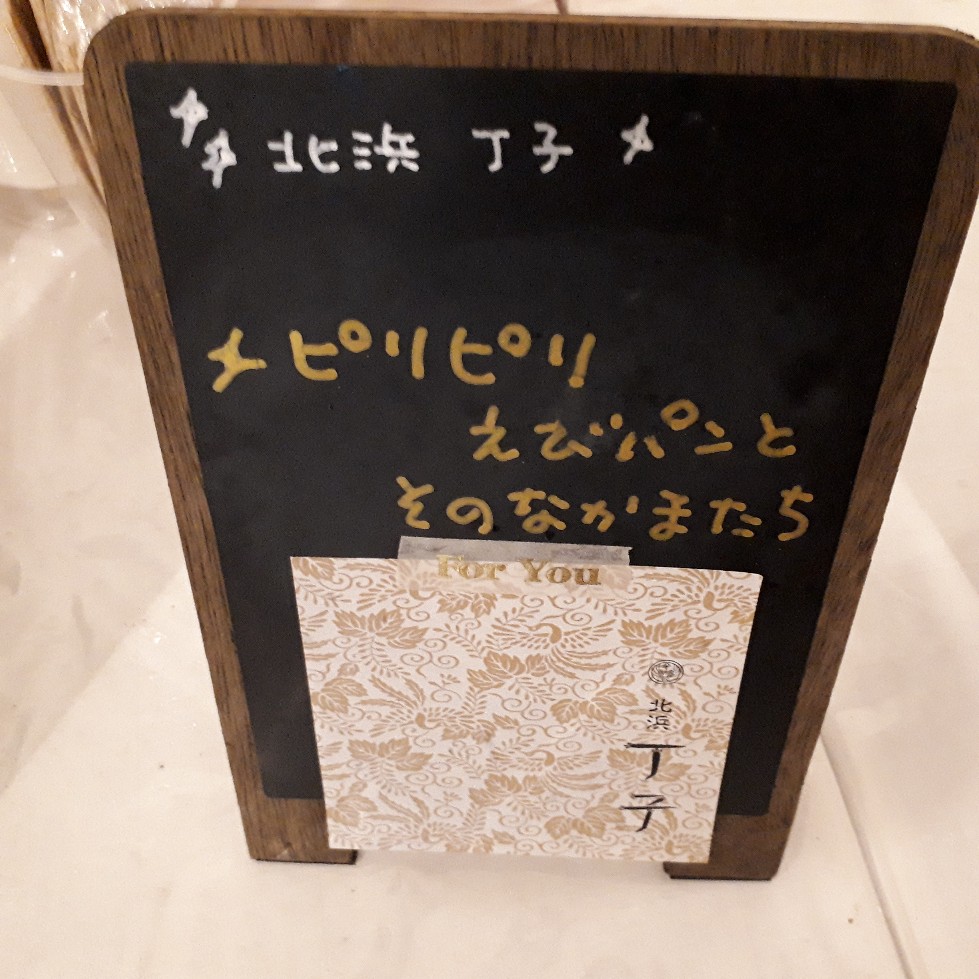 北浜 丁子
ピリピリ
えびパンと
そのなかまたち
For You
北浜
丁子